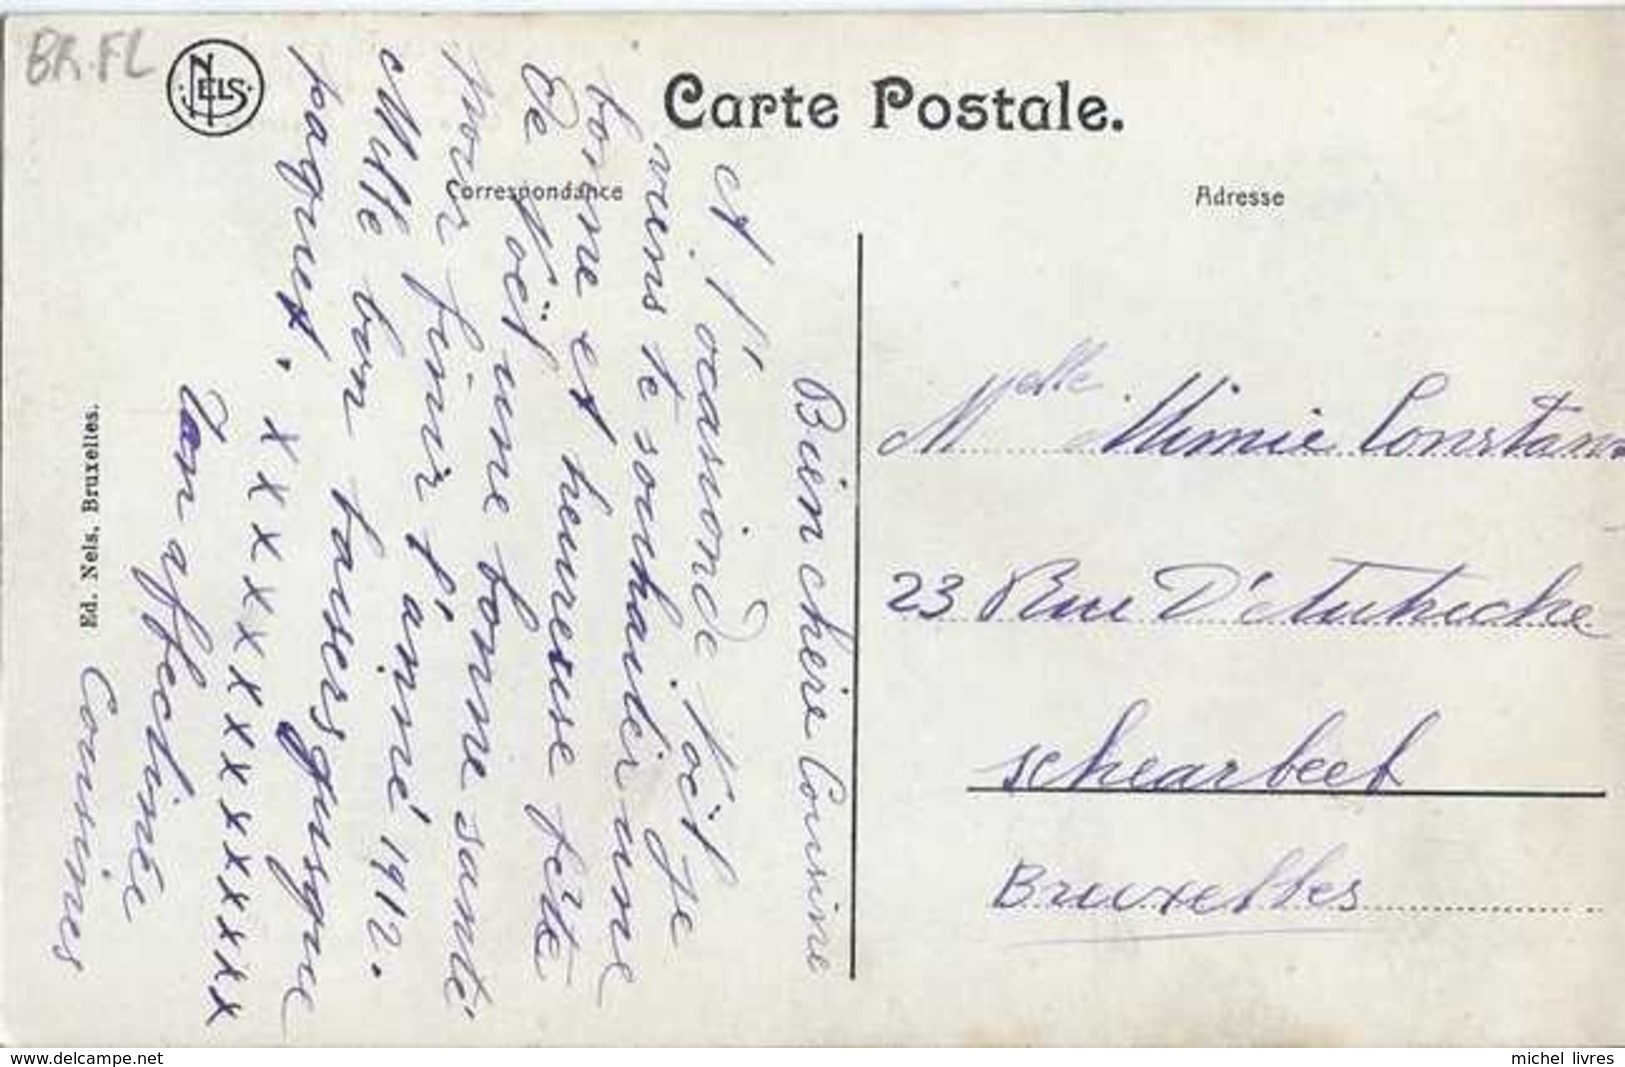 BR.FL
NELS
Carte Postale.
Correspondance
Adresse
Bien chère Cousine
A l'ocasionde Noël Je
viens te souhaiter une
bonne et heureuse fête
De Noël
une bonne santé
pour finir l'anné 1912.
Mille bon baisers jusque
paques.
x x x x x x x x x x x x x x x
Ton affectinée
Cousines
Ed. Nels, Bruxelles.
Melle Mimie Constan
23 Rue D'
schearbeek
Bruxelles
www.delcampe.net
michel livres